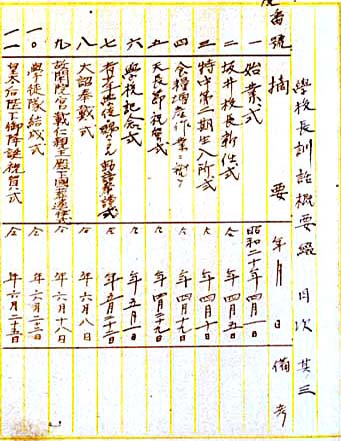 學校長訓話概要綴 目次 其三
番號 摘要 年月日 備考
一 始業式 昭和二十年四月一日
二 坂井校長新任式 仝 年四月五日
三 特甲第二期生入所式 仝 年四月十日
四 食糧増産作業ニ就テ 仝 年四月十九日
五 天長節祝賀式 仝 年四月二十九日
六 學校記念式 仝 年五月一日
七 青少年學徒ニ賜ハリタル勅語奉読式 仝 年五月二十二日
八 大詔奉戴式 仝 年六月八日
九 故閑院宮載仁親王殿下國葬遥拝式 仝 年六月十八日
一〇 學徒隊結成式 仝 年六月二十二日
一一 皇太后陛下御降誕祝賀式 仝 年六月二十五日